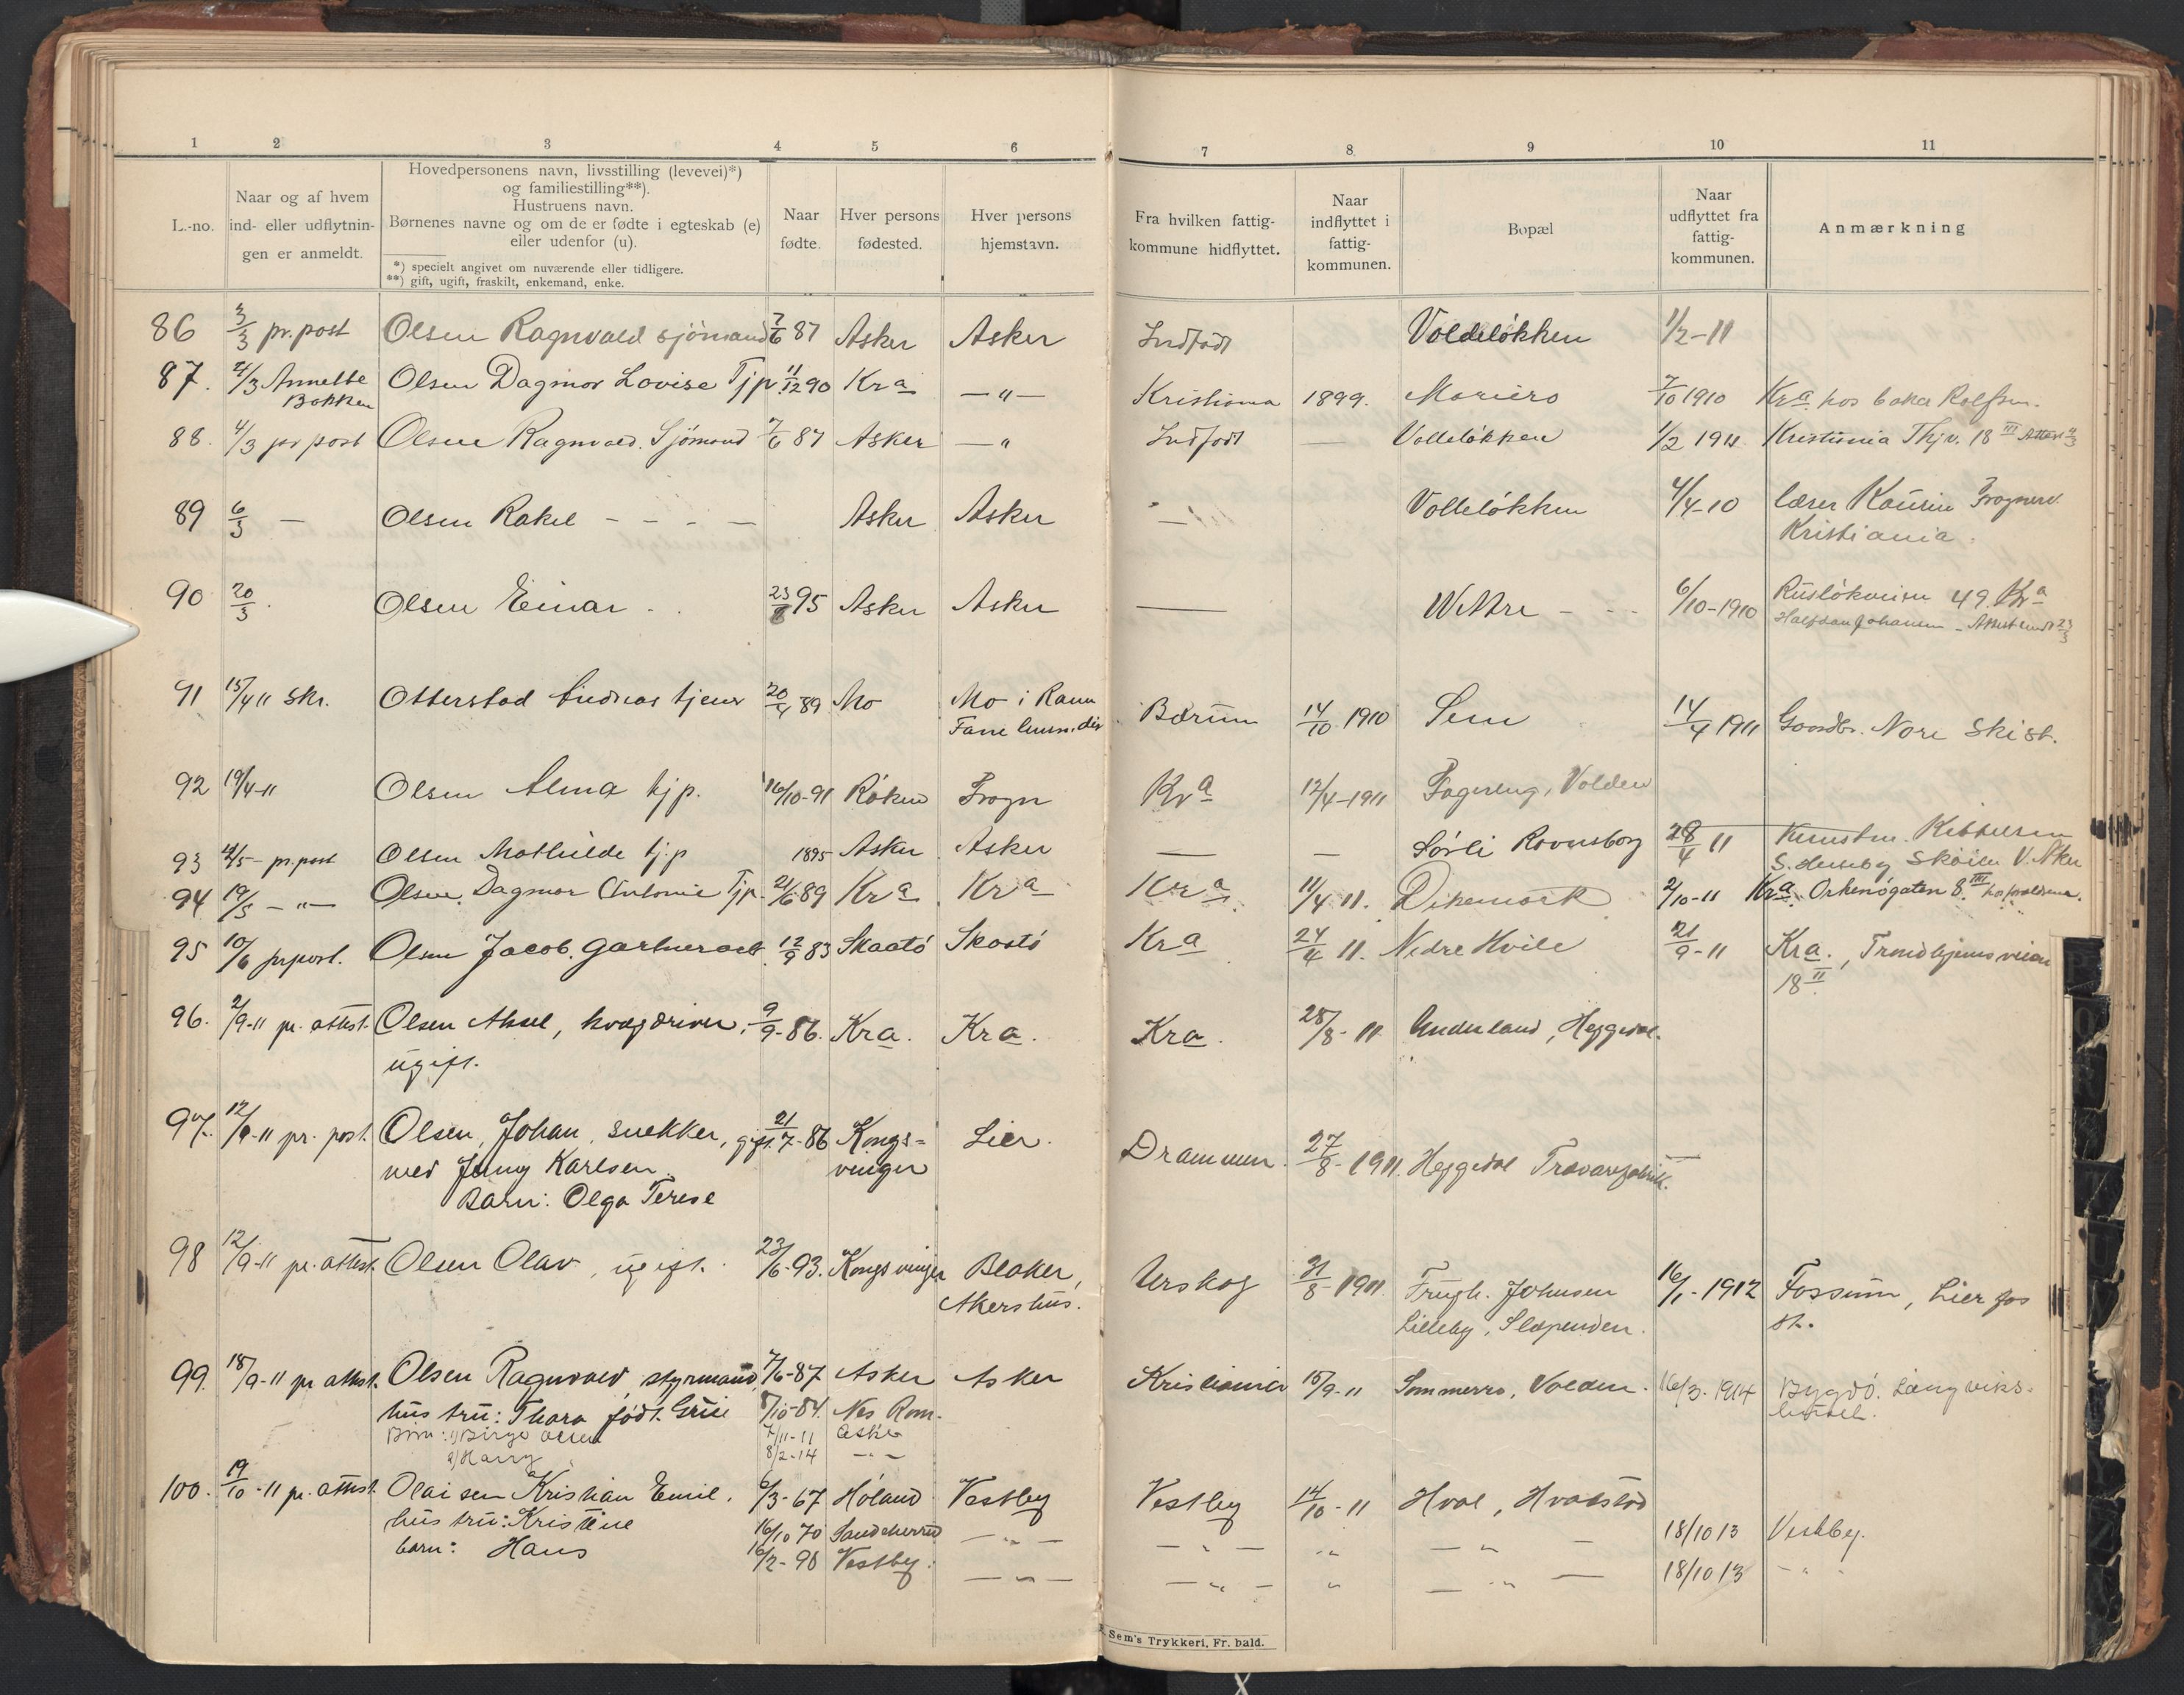 1 2 3 4 5 6 7 8 9 10 11
L.-no.
Naar og af hvem
ind- eller udflytnin-
gen er anmeldt.
Hovedpersonens navn, livsstilling (levevei)*)
og familiestilling**).
Hustruens navn.
Børnenes navne og om de er fødte i egteskab (e)
eller udenfor (u).
*) specielt angivet om nuværende eller tidligere.
**) gift, ugift, fraskilt, enkemand, enke.
Naar
fødte.
Hver persons
fødested.
Hver persons
hjemstavn.
Fra hvilken fattig-
kommune hidflyttet.
Naar
indflyttet i
fattig-
kommunen.
Bopæl
Naar
udflyttet fra
fattig-
kommunen.
Anmærkning
86 3/3 pr. post Olsen Ragnvald sjömand 7/6 87 Asker Asker Indfödt Voldeløkken 1/2-11
87. 4/3 Annette Olsen Dagmar Lovise Tjp. 11/12 90 Kra —"— Kristiania 1899. 7/10 1910 Kra hos
Bakken
88. 4/3 pr post Olsen Ragnvald. Sjömand 7/6 87 Asker —" Indfödt Volleløkken 1/2 1911 Kristiania 18 III Attest 4/3
89 6/3 — Olsen Rakel - - - — Asker Asker — Volleløkken 4/4-10
Kristiania.
90 20/3. Olsen Einar - 23/8 95 Asker Asker — Wettre - - - 6/10-1910 Rusløkveien 49. Kra
Halfdan Johansen - Attest sendt 23/3
91 15/4 11 Skr. Otterstad Andreas tjener 20/4 89 Mo Mo i Rana
Bærum 14/10 1910 Sem 14/4 1911 Gaardbr. Nore Ski st.
92 19/4-11 Olsen Alma tjp. 16/10-91 Røken Frogn Kra 12/4-1911 Fagereng, Volden
93 4/5 - pr. post Olsen Mathilde tjp 1895 Asker Asker — — Sørli Ravnsborg 28/4 11
S. Huseby Skøien V. Aker
94 19/5 —"— Olsen. Dagmar Antonie Tjp. 21/6 89 Kra Kra Kra. 11/4 11. Dikemark 2/10-11 Kra. Orknögaten 8. III
95 10/6 pr post. Olsen Jacob. Gartnerarb. 12/9 83 Skaatö Skaatö Kra 24/4 11. Nedre Hvile 21/9-11 Kra., Trondhjemsveien
18 II
96. 2/9-11 pr. attest. Olsen Aksel, kvægdriver, 9/9-86. Kra. Kra. Kra. 28/8-11 Underland, Heggedal.
ugift.
97. 12/9-11 pr. post. Olsen, Johan, snekker, gift. 21/7-86 Kongs- Lier. Drammen 27/8-1911. Heggedal Trævarefabrik.
med Jenny Karlsen vinger
Barn: Olga Terese
98 12/9-11 pr. attest. Olsen Olav, ugift. 23/6-93. Kongsvinger Blaker, Urskog 31/8-1911. Frugh. Johnsen 16/1-1912 Fossum, Lier
Akershus. Lilleby, Slæpenden. st.
99. 18/9-11 pr attest. Olsen Ragnvald, styrmand, 7/6-87 Asker Asker Kristiania 15/9-11 Sommerro, Volden. 16/3-1914 Bygdö. Langviks-
hustru: Thora født Grue 8/10-84. Nes Rom.
Børn: 1) Birger Olsen 7/11-11 Asker
2) Harry 8/2-14 —"—
100. 19/10-11 pr. attest. Olaisen Kristian Emil. 6/3-67 Høland Vestby Vestby 14/10-11 Hval, Hvalstad
hustru: Kristine 16/10 70 —"— —"— " —"— 18/10 13 Vestby.
barn: Hans 16/2-98 Vestby. —"— —"— " —"— 18/10 13 - " -
Sem's Trykkeri, Fr. hald.